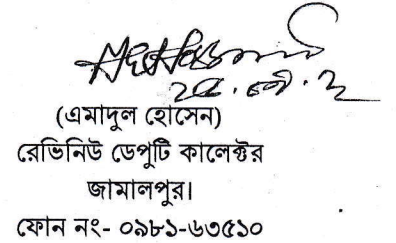 (এমাদুল হোসেন)
রেভিনিউ ডেপুটি কালেক্টর
জামালপুর।
ফোন নং- ০৯৮১-৬৩৫১০